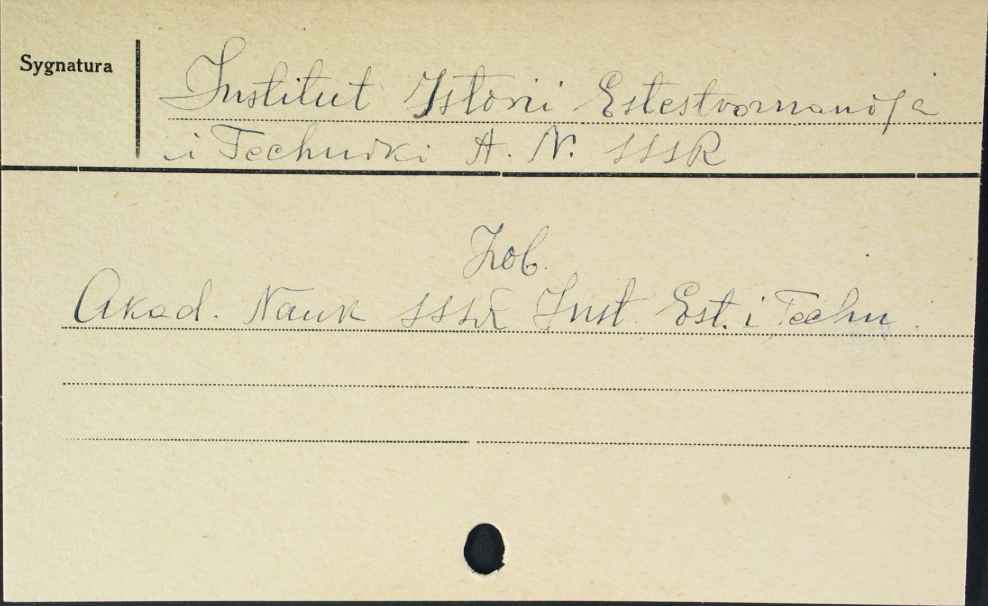 Sygnatura
Institut Istorii Estestvoznanija
i Techniki A. N. SSSR
Zob.
Akad. Nauk SSSR Inst. Est. i Techn.